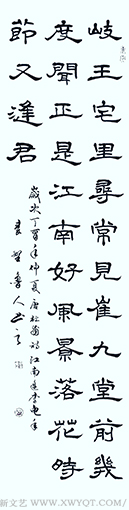 岐王宅里尋常見崔九堂前幾
度聞正是江南好風景落花時
節又逢君
歲次丁酉年仲夏唐杜甫詩江南逢李龜年
新文艺 WWW.XWYQT.COM/